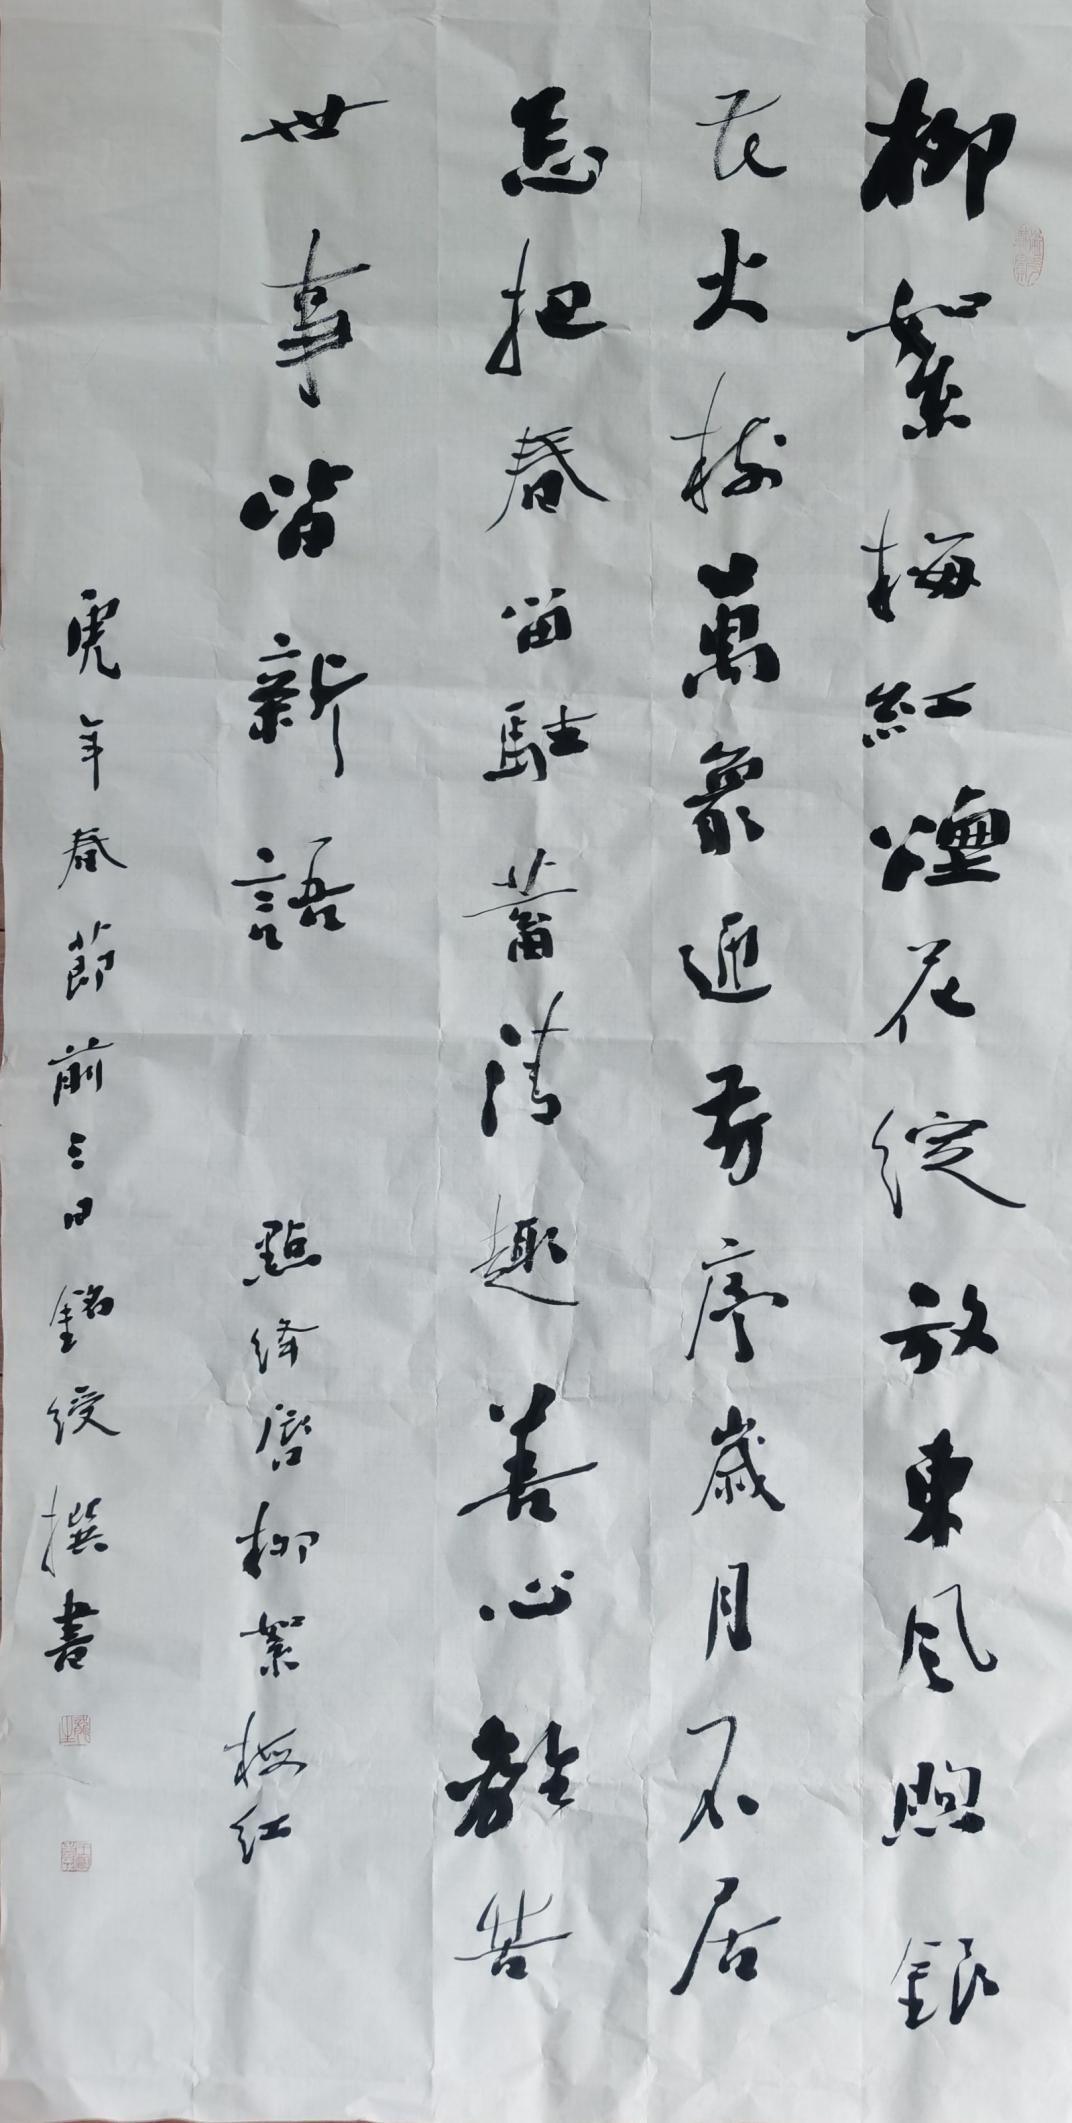 柳絮梅紅煙花綻放東風煦銀
花火樹萬象遞芳序歲月不居
怎把春留駐蓄清趣善心離苦
世事皆新語
點絳唇柳絮梅红
虎年春節前三日銘綬撰書